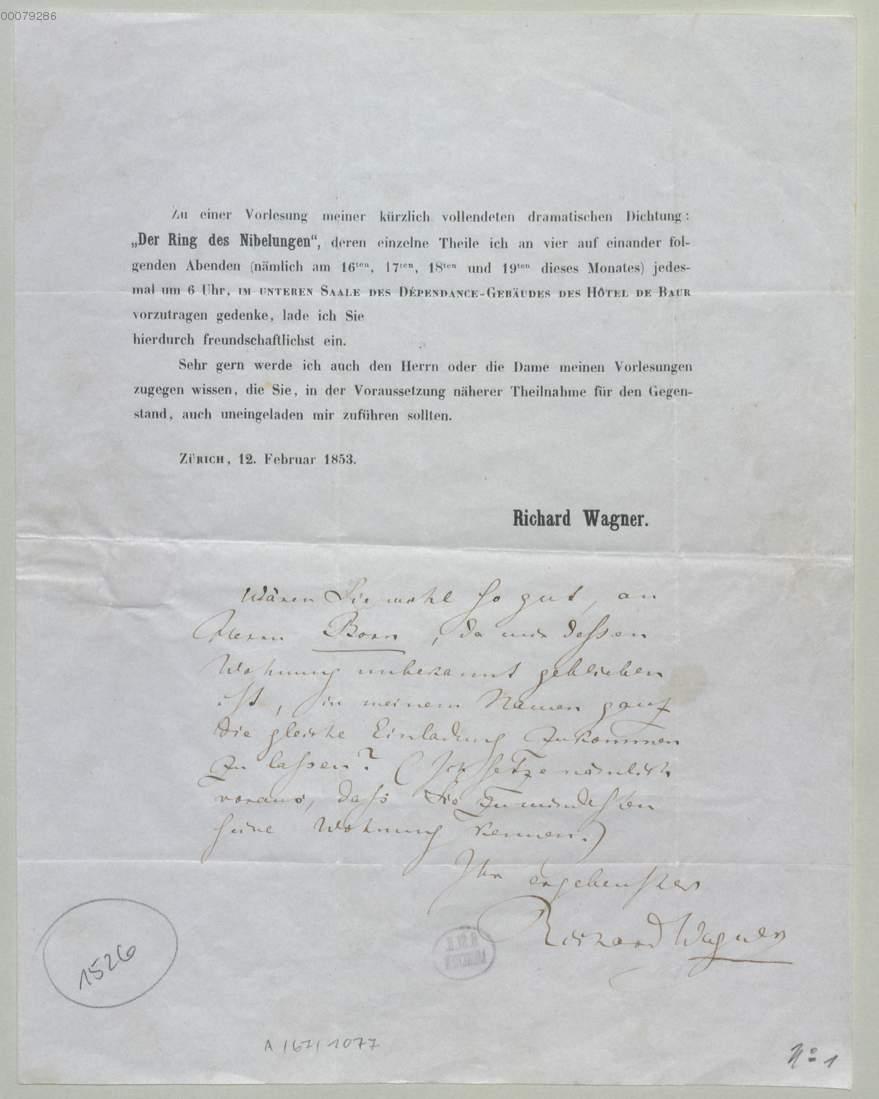 00079286
Zu einer Vorlesung meiner kürzlich vollendeten dramatischen Dichtung:
„Der Ring des Nibelungen“, deren einzelne Theile ich an vier auf einander fol-
genden Abenden (nämlich am 16ten, 17ten, 18ten und 19ten dieses Monates) jedes-
mal um 6 Uhr, IM UNTEREN SAALE DES DÉPENDANCE-GEBÄUDES DES HÔTEL DE BAUR
vorzutragen gedenke, lade ich Sie
hierdurch freundschaftlichst ein.
Sehr gern werde ich auch den Herrn oder die Dame meinen Vorlesungen
zugegen wissen, die Sie, in der Voraussetzung näherer Theilnahme für den Gegen-
stand, auch uneingeladen mir zuführen sollten.
ZÜRICH, 12. Februar 1853.
Richard Wagner.
Wären Sie wohl so gut, an
Herrn Born, da mir dessen
Wohnung unbekannt geblieben
ist, in meinem Namen ganz
die gleiche Einladung zukommen
zu lassen? (Ich setze nämlich
voraus, dass Sie zumindesten
seine Wohnung kennen.)
Ihr ergebenster
Richard Wagner
1526
A 167/1077
No 1